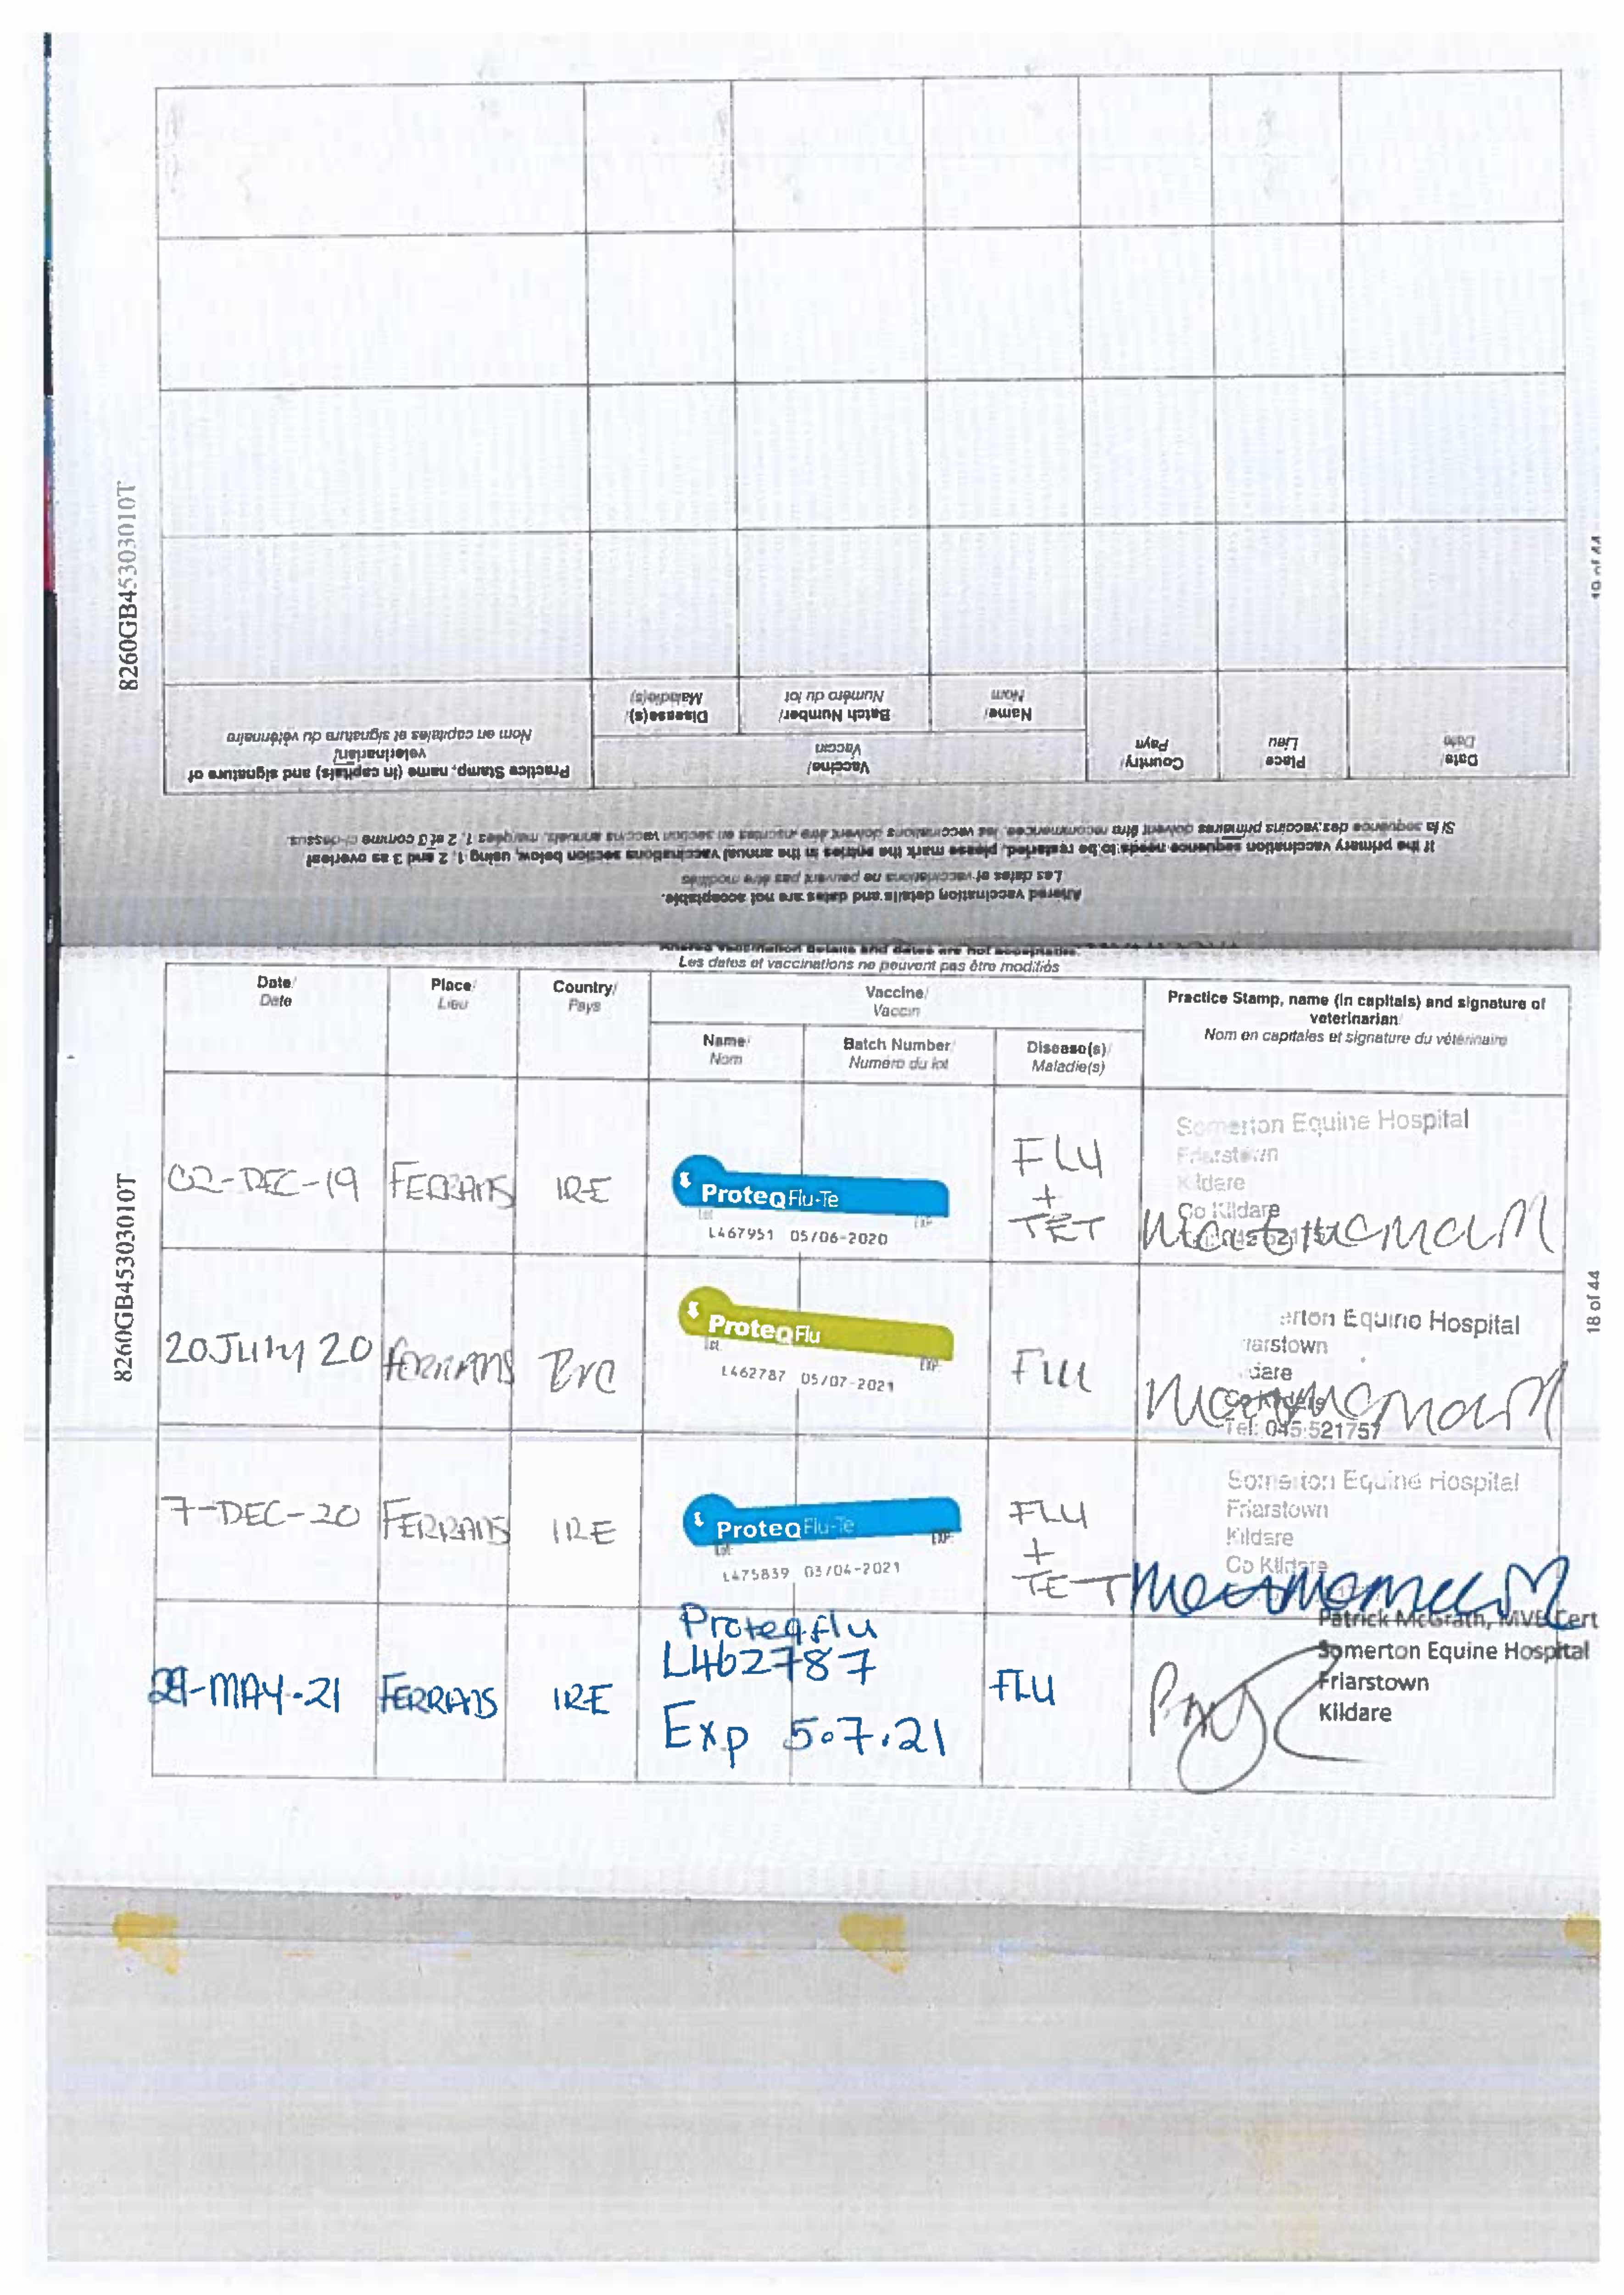 8260GB45303010T
19 of 44
Altered vaccination details and dates are not acceptable.
Les dates et vaccinations ne peuvent pas être modifiés
If the primary vaccination sequence needs to be restarted, please mark the entries in the annual vaccinations section below, using 1, 2 and 3 as overleaf
Si la séquence des vaccins primaires doivent être recommencées, les vaccinations doivent être inscrites en section vaccins annuels, marquées 1, 2 et 3 comme ci-dessus.
Date/ Place Country/ Vaccine/ Practice Stamp, name (in capitals) and signature of
Date Lieu Pays Vaccin veterinarian/
Name/ Batch Number/ Disease(s)/ Nom en capitales et signature du vétérinaire
Nom Numéro du lot Maladie(s)
Altered vaccination details and dates are not acceptable.
Les dates et vaccinations ne peuvent pas être modifiés
Date/ Place/ Country/ Vaccine/ Practice Stamp, name (in capitals) and signature of
Date Lieu Pays Vaccin veterinarian/
Name/ Batch Number/ Disease(s)/ Nom en capitales et signature du vétérinaire
Nom Numéro du lot Maladie(s)
8260GB45303010T
18 of 44
02-DEC-19 FERRANS IRE ProteqFlu-Te FLU + TET Somerton Equine Hospital
Lot EXP Friarstown
L467951 05/06-2020 Kildare
Co Kildare
20 July 20 FERRANS ProteqFlu Flu erton Equine Hospital
Lot EXP iarstown
L462787 05/07-2021 dare
Co Kildare
Tel: 045 521757
7-DEC-20 FERRANS IRE ProteqFlu-Te FLU + TET Somerton Equine Hospital
Lot EXP Friarstown
L475839 03/04-2021 Kildare
Co Kildare
-MAY-21 FERRANS IRE Proteqflu FLU Patrick McGrath, MVB Cert
L462787 Somerton Equine Hospital
Exp 5.7.21 Friarstown
Kildare